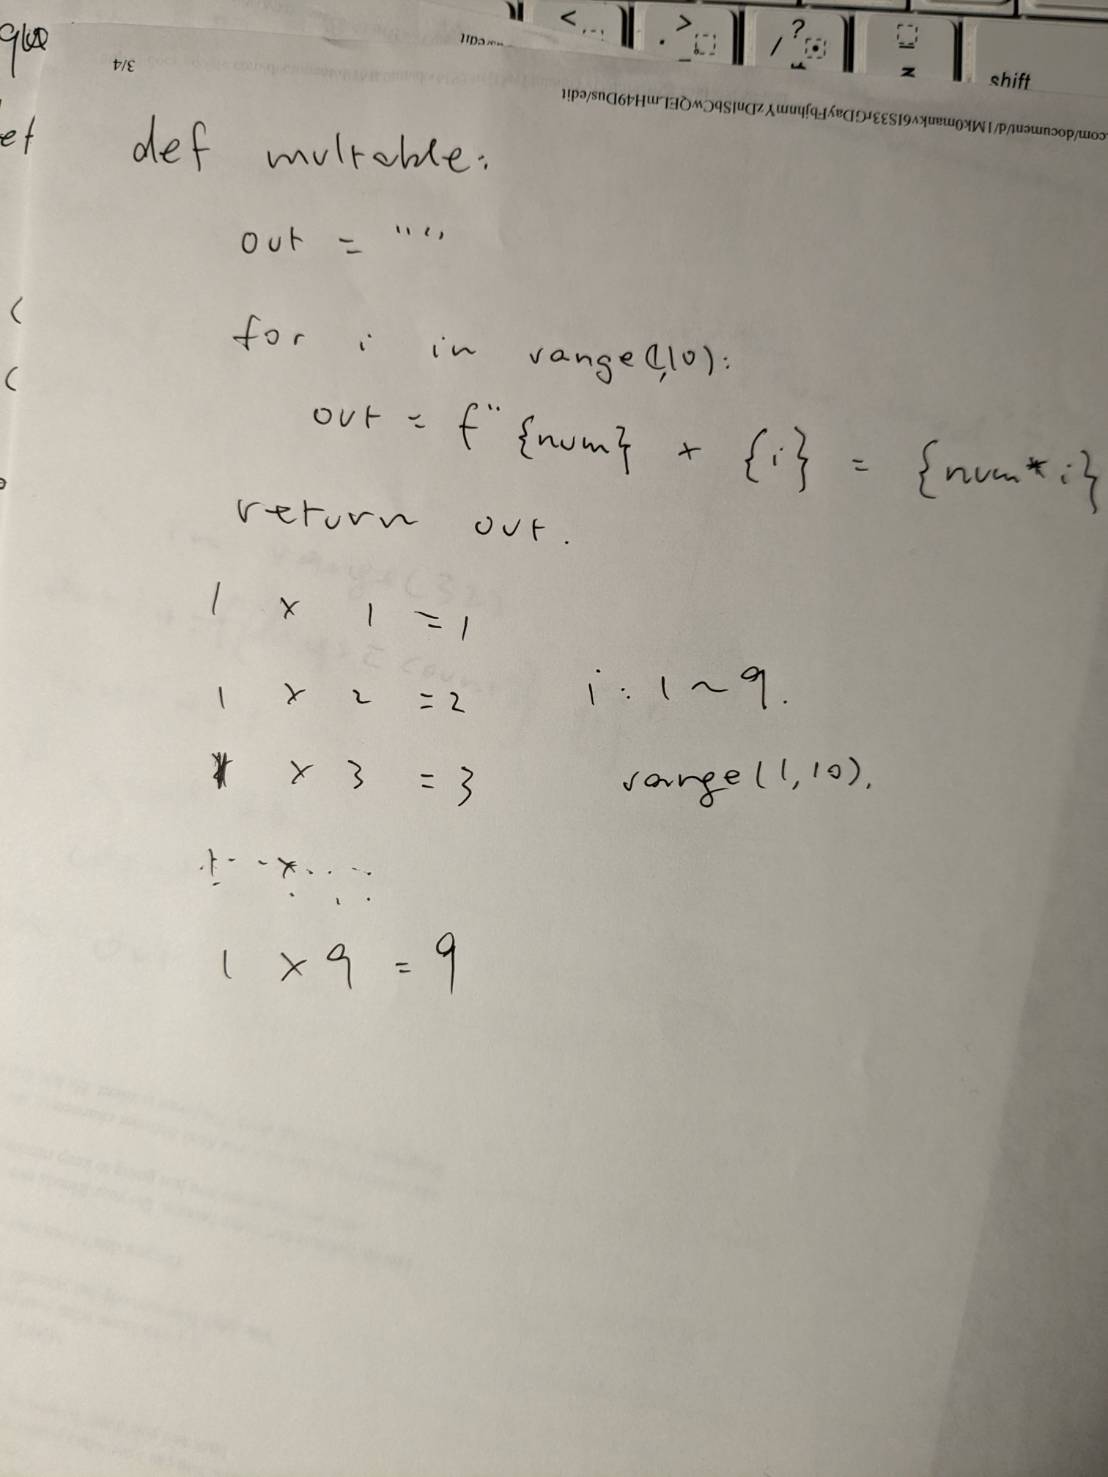 shift
3/4
.com/document/d/1Mk0mankv6IS33rGDayFbjhnmYzDnlSbCwQELmH49Dus/edit
def multable:
out = ""
for i in range(1,10):
out = f"{num} x {i} = {num*i}
return out.
1 x 1 = 1
1 x 2 = 2
1 x 3 = 3
1 x 9 = 9
i : 1 ~ 9.
range(1,10).